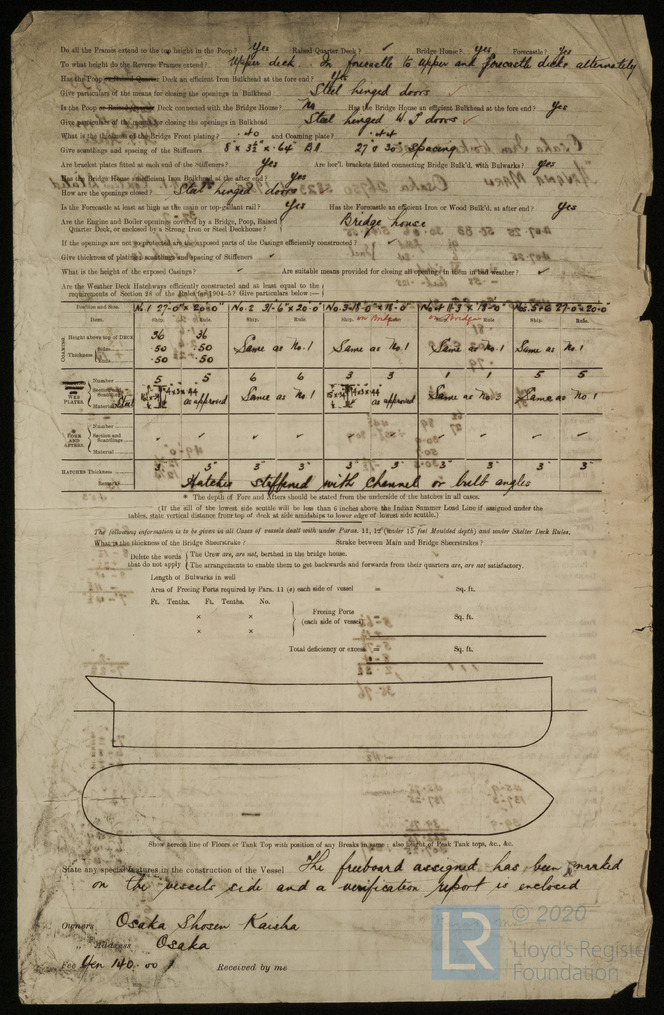 Do all the Frames extend to the top height in the Poop? Yes Raised Quarter Deck? ✓ Bridge House? Yes Forecastle? Yes
To what height do the Reverse Frames extend? Upper deck. In forecastle to Upper and forecastle decks alternately
Has the Poop or Raised Quarter Deck an efficient Iron Bulkhead at the fore end? Yes
Give particulars of the means for closing the openings in Bulkhead Steel hinged doors ✓
Is the Poop or Raised Deck connected with the Bridge House? No Has the Bridge House an efficient Bulkhead at the fore end? Yes
Give particulars of the means for closing the openings in Bulkhead Steel hinged W.T doors ✓
What is the thickness of the Bridge Front plating? .40 and Coaming plate? .44
Give scantlings and spacing of the Stiffeners 8" x 3½" x .64" BA 27 & 30 spacing
Are bracket plates fitted at each end of the Stiffeners? Yes Are hor'l. brackets fitted connecting Bridge Bulk'd. with Bulwarks? Yes
Has the Bridge House an efficient Iron Bulkhead at the after end? Yes
How are the openings closed? Steel hinged doors
Is the Forecastle at least as high as the main or top-gallant rail? Yes Has the Forecastle an efficient Iron or Wood Bulk'd. at after end? Yes
Are the Engine and Boiler openings covered by a Bridge, Poop, Raised Quarter Deck, or enclosed by a Strong Iron or Steel Deckhouse? Bridge house
If the openings are not so protected are the exposed parts of the Casings efficiently constructed? ✓
Give thickness of plating & scantlings and spacing of Stiffeners ✓
What is the height of the exposed Casings? ✓ Are suitable means provided for closing all openings in them in bad weather? ✓
Are the Weather Deck Hatchways efficiently constructed and at least equal to the requirements of Section 28 of the Rules for 1904-5? Give particulars below :—
Position and Size. No. 1 27'-0" x 20'-0" No. 2 31'-6" x 20'-0" No. 3 18'-0" x 18'-0" on Bridge No. 4 11'-3 x 18'-0" on Bridge Nos. 5 & 6 27'-0 x 20'-0"
Item. Ship. Rule. Ship. Rule. Ship. Rule. Ship. Rule. Ship. Rule.
COAMING Height above top of DECK 36 36 Same as No. 1 Same as No. 1 Same as No. 1 Same as No. 1
Thickness Sides .50 .50
Ends .50 .50
WEB PLATES. Number 5 5 6 6 3 3 1 1 5 5
Section and Scantlings as approved Same as No. 1 as approved Same as No. 3 Same as No. 1
Material Steel
FORE AND AFTERS. Number
Section and Scantlings ✓ ✓ ✓ ✓ ✓ ✓ ✓ ✓ ✓
Material
HATCHES Thickness 3" 3" 3" 3" 3" 3" 3" 3" 3" 3"
Remarks Hatches stiffened with channel or bulb angles
* The depth of Fore and Afters should be stated from the underside of the hatches in all cases.
(If the sill of the lowest side scuttle will be less than 6 inches above the Indian Summer Load Line if assigned under the
tables, state vertical distance from top of deck at side amidships to lower edge of lowest side scuttle.)
The following information is to be given in all Cases of vessels dealt with under Paras. 11, 12 (under 15 feet Moulded depth) and under Shelter Deck Rules.
What is the thickness of the Bridge Sheerstrake? Strake between Main and Bridge Sheerstrakes?
Delete the words that do not apply { The Crew are, are not, berthed in the bridge house.
The arrangements to enable them to get backwards and forwards from their quarters are, are not satisfactory.
Length of Bulwarks in well
Area of Freeing Ports required by Para. 11 (e) each side of vessel = Sq. ft.
Ft. Tenths. Ft. Tenths. No.
x x
x x
Freeing Ports (each side of vessel) Sq. ft.
Total deficiency or excess = Sq. ft.
Show hereon line of Floors or Tank Top with position of any Breaks in same ; also height of Peak Tank tops, &c., &c.
State any special features in the construction of the Vessel The freeboard assigned has been marked
on the vessels side and a verification report is enclosed
Owners Osaka Shosen Kaisha
Address Osaka
Fee Yen 140.00 Received by me
LR © 2020
Lloyd's Register
Foundation